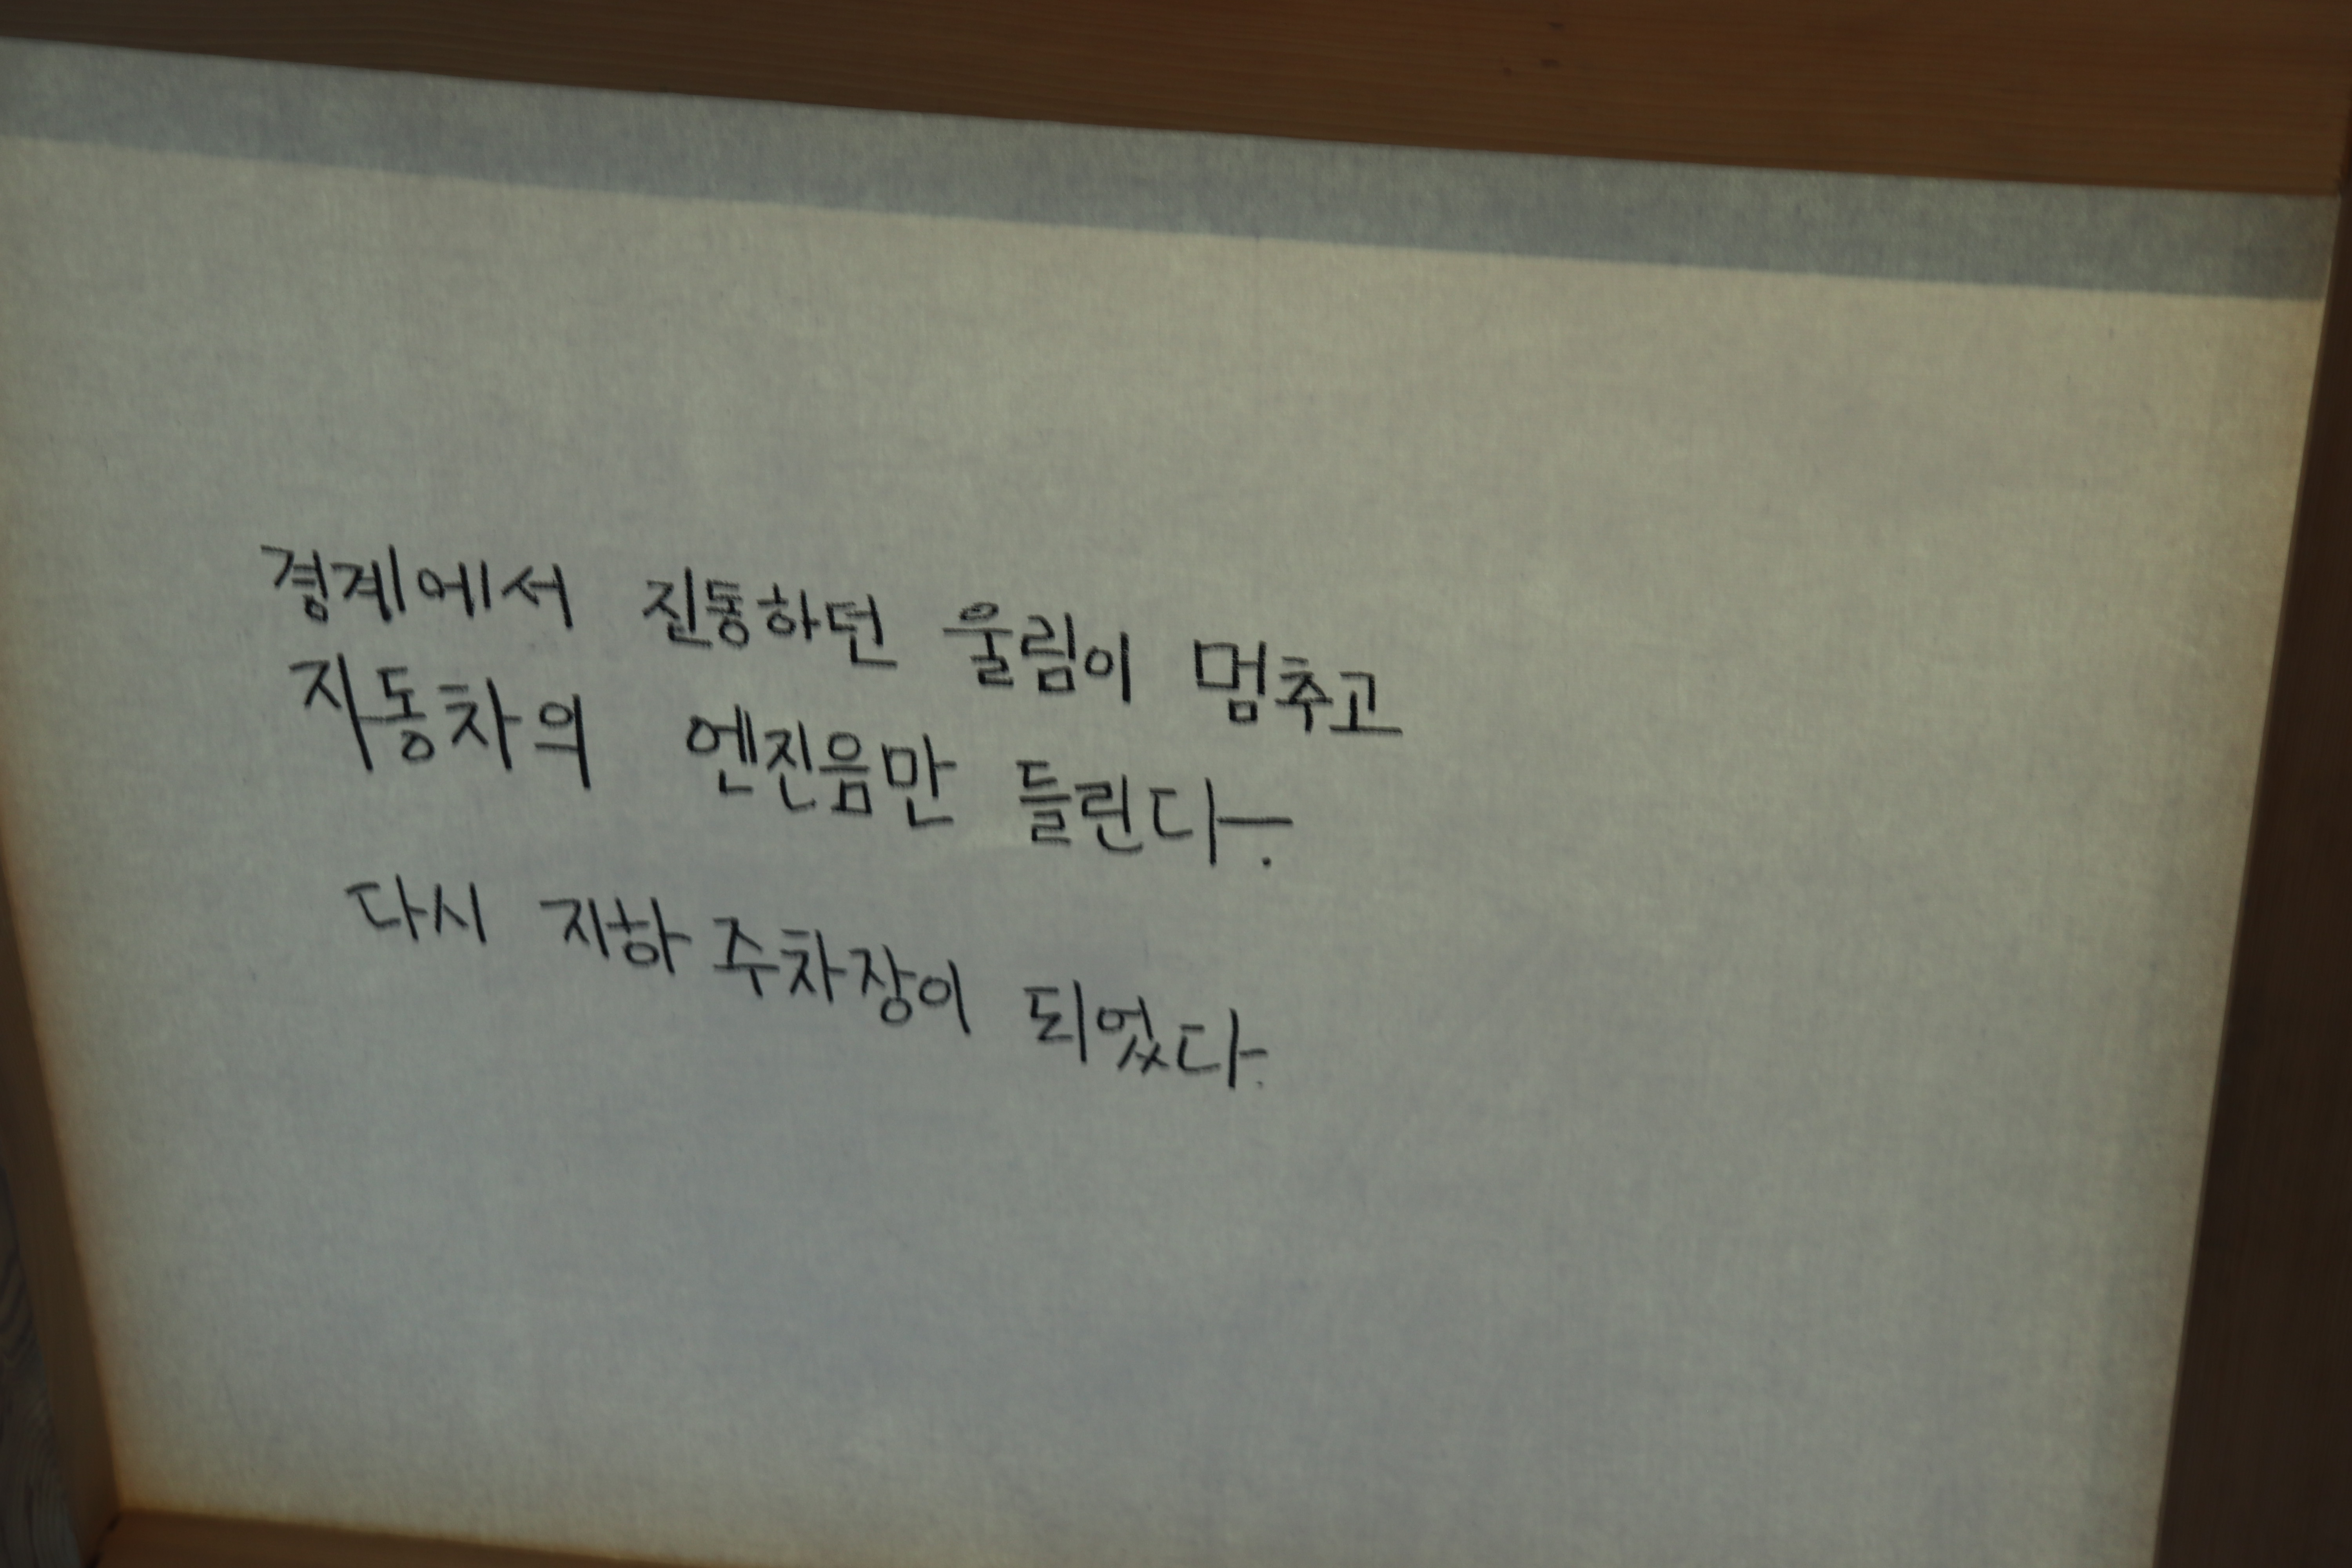 경계에서 진동하던 울림이 멈추고
자동차의 엔진음만 들린다.
다시 지하 주차장이 되었다.